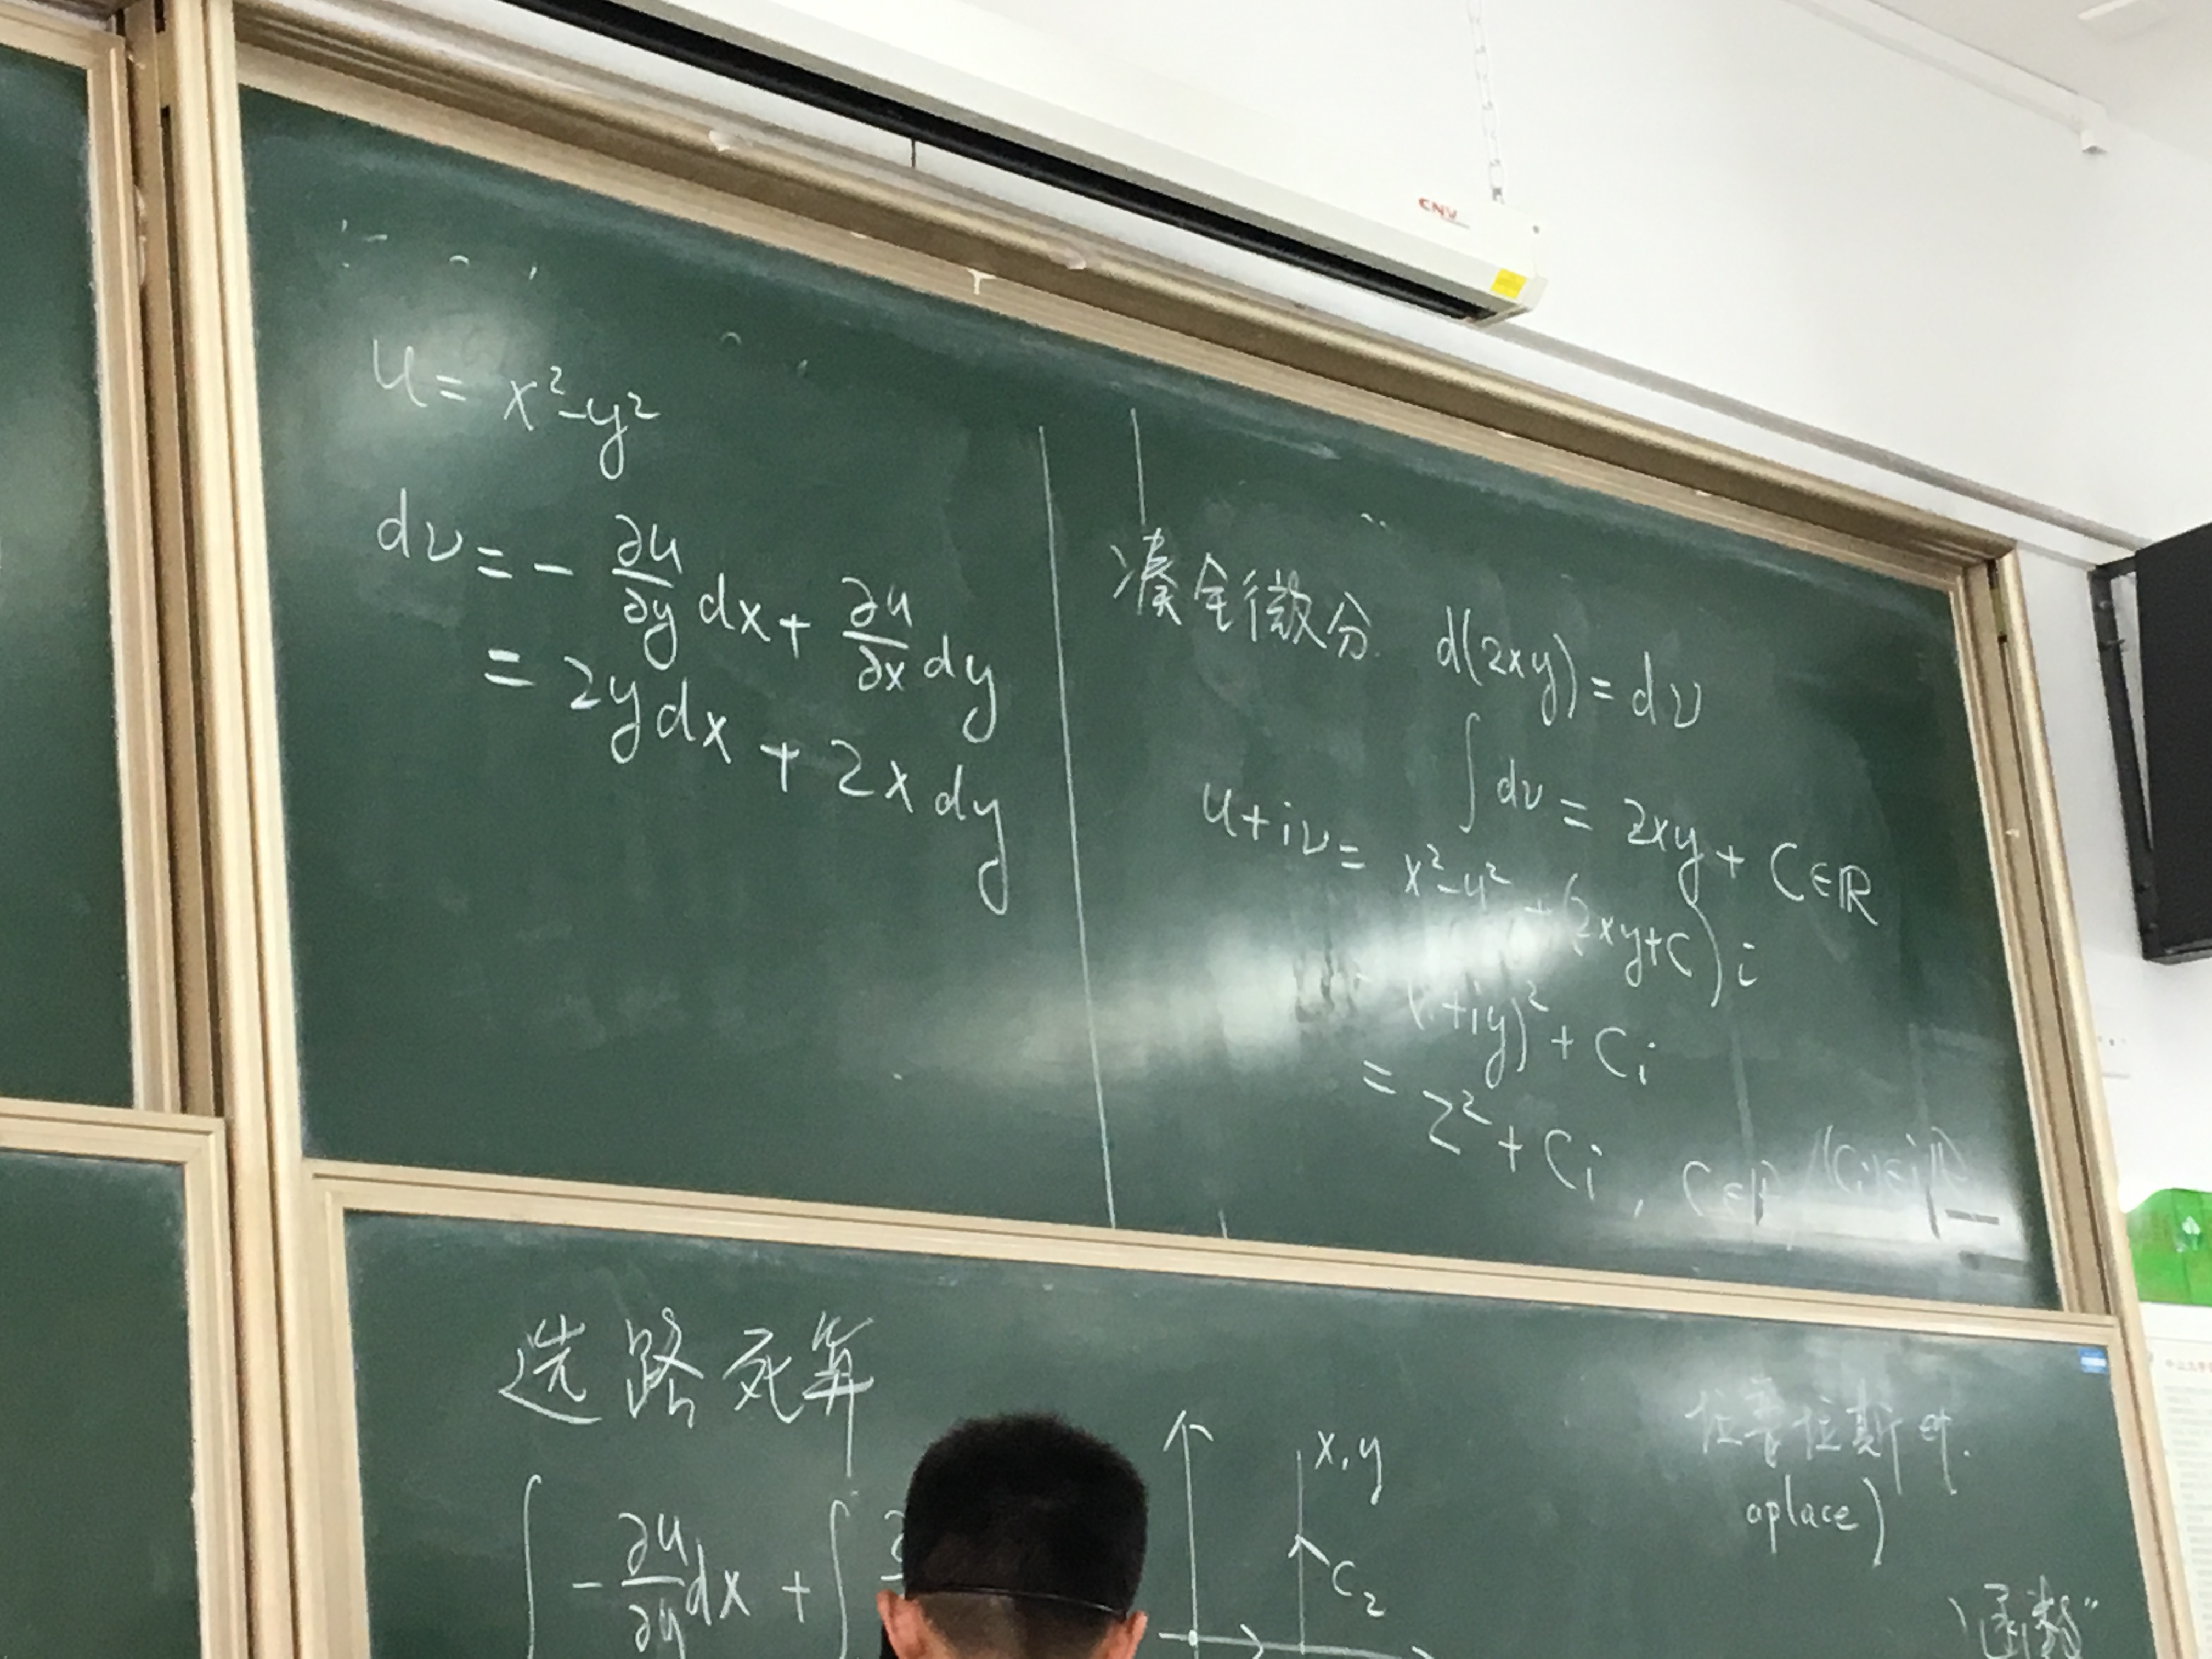 CNV
u = x²-y²
dv = - ∂u/∂y dx + ∂u/∂x dy
= 2ydx + 2xdy
凑全微分 d(2xy) = dv
∫dv = 2xy + C∈ℝ
u+iv = x²-y² + (2xy+C)i
+iy)² + Ci
= z² + Ci,
选路死算
∫ -∂u/∂y dx + ∫
x,y
C₂
aplace)
函数”